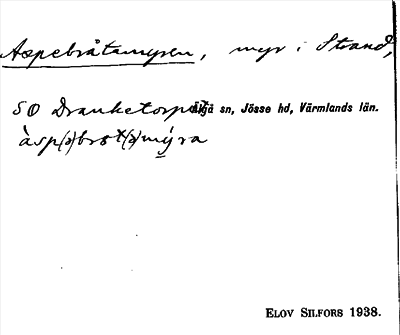 Aspebråtamyren, myr i Strand,
SO Dranketorpet Älgå sn, Jösse hd, Värmlands län.
àsp(ə)brɷt(ə)mýra
ELOV SILFORS 1938.